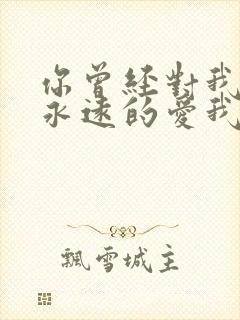 你曾經對我
永遠的愛我
飄雪城主